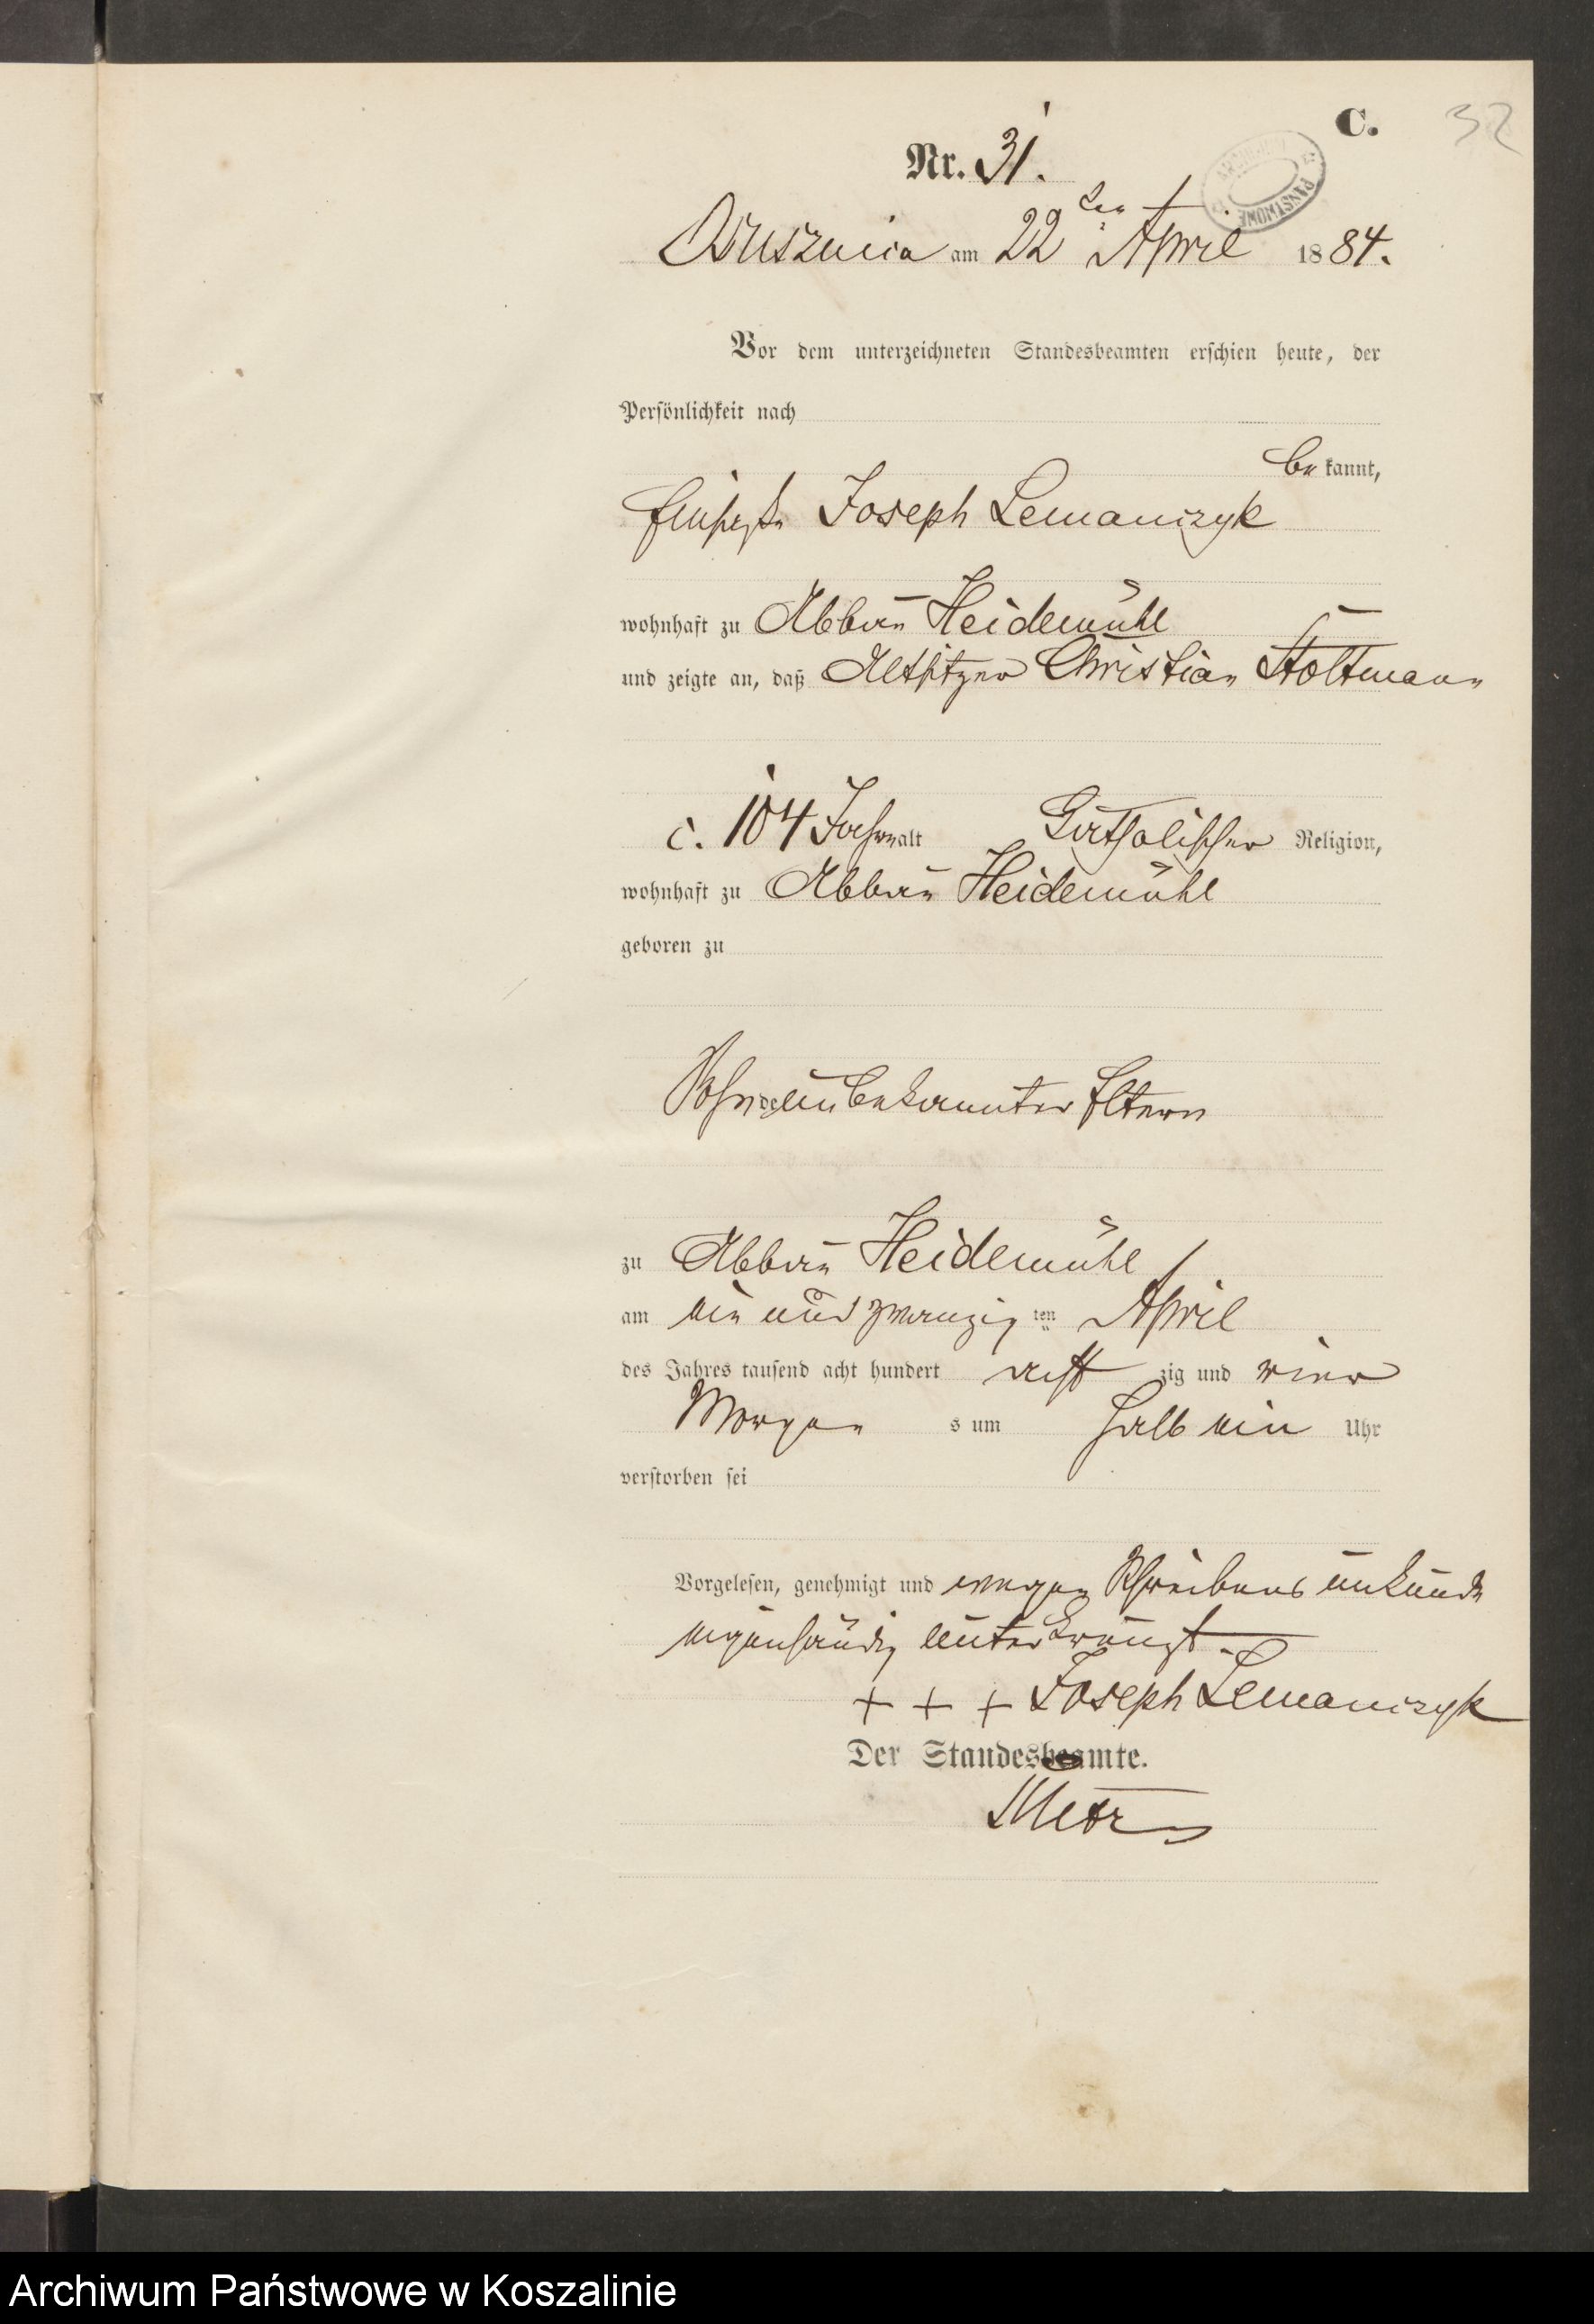 C.
32
Nr. 31.
Borzuszkowo am 22ten April 1884.
Vor dem unterzeichneten Standesbeamten erschien heute, der
Persönlichkeit nach
be kannt,
Joseph Lemanczyk
wohnhaft zu Abbau Heidemühl
und zeigte an, daß Altsitzer Christian Stoltmann
c. 104 Jahre alt Katholischer Religion,
wohnhaft zu Abbau Heidemühl
geboren zu
Sohn unbekannter Eltern
zu Abbau Heidemühl
am ein und zwanzig ten April
des Jahres tausend acht hundert acht zig und vier
Morgen s um halb ein Uhr
verstorben sei
Vorgelesen, genehmigt und wegen Schreibens unkunde
eigenhändig unterkreuzt
+ + + Joseph Lemanczyk
Der Standesbeamte.
Archiwum Państwowe w Koszalinie